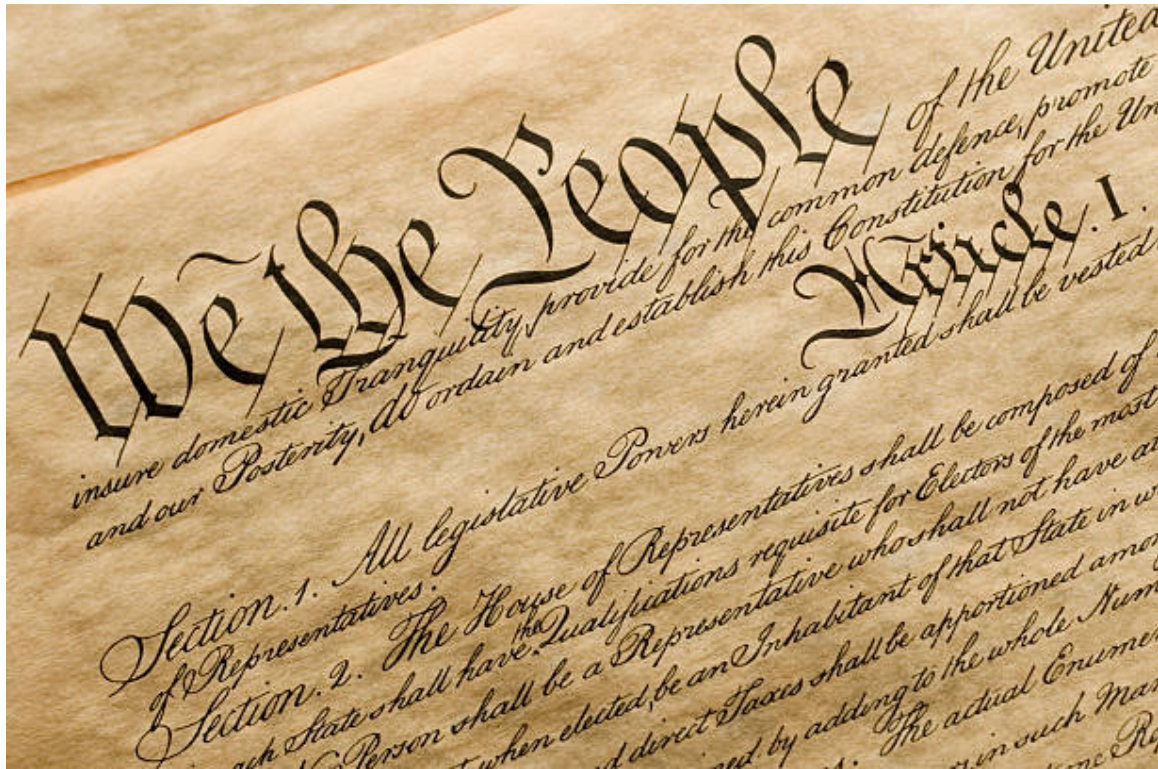 We the People of the United
insure domestic Tranquility, provide for the common defence, promote
and our Posterity, do ordain and establish this Constitution for the Un
Article. I.
Section. 1. All legislative Powers herein granted shall be vested
of Representatives.
Section. 2. The House of Representatives shall be composed of
ach State shall have the Qualifications requisite for Electors of the most
No Person shall be a Representative who shall not have at
t when elected, be an Inhabitant of that State in w
d direct Taxes shall be apportioned amon
ned by adding to the whole Num
s. The actual Enumer
rs, in such Man